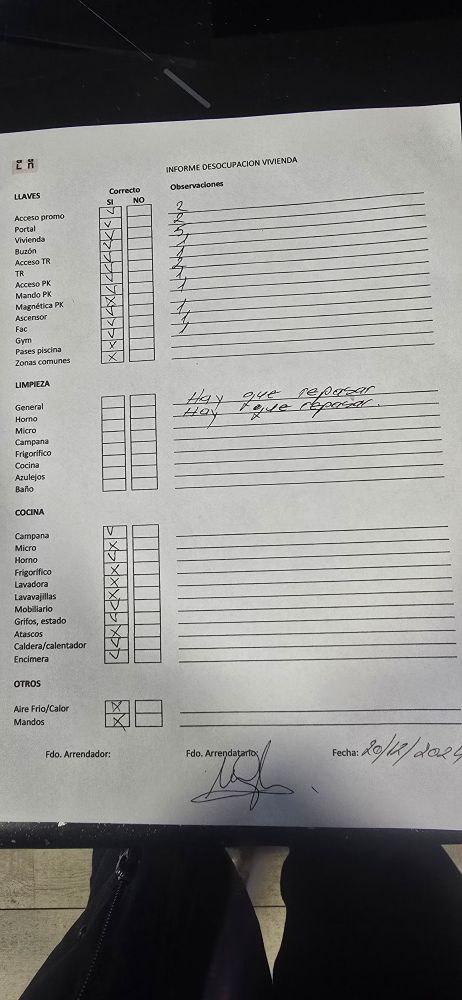 INFORME DESOCUPACION VIVIENDA
LLAVES Correcto Observaciones
SI NO
Acceso promo ✓ 2
Portal ✓ 2
Vivienda ✓ 5
Buzón ✓ 1
Acceso TR ✓ 1
TR ✓ 2
Acceso PK ✓ 1
Mando PK ✓ 1
Magnética PK X
Ascensor ✓ 1
Fac ✓ 1
Gym ✓ 1
Pases piscina X
Zonas comunes X
LIMPIEZA
General Hay que repasar
Horno Hay que repasar.
Micro
Campana
Frigorífico
Cocina
Azulejos
Baño
COCINA
Campana ✓
Micro X
Horno ✓
Frigorífico X
Lavadora X
Lavavajillas X
Mobiliario ✓
Grifos, estado ✓
Atascos X
Caldera/calentador ✓
Encimera ✓
OTROS
Aire Frio/Calor X
Mandos X
Fdo. Arrendador: Fdo. Arrendatario: Fecha: 20/12/2024